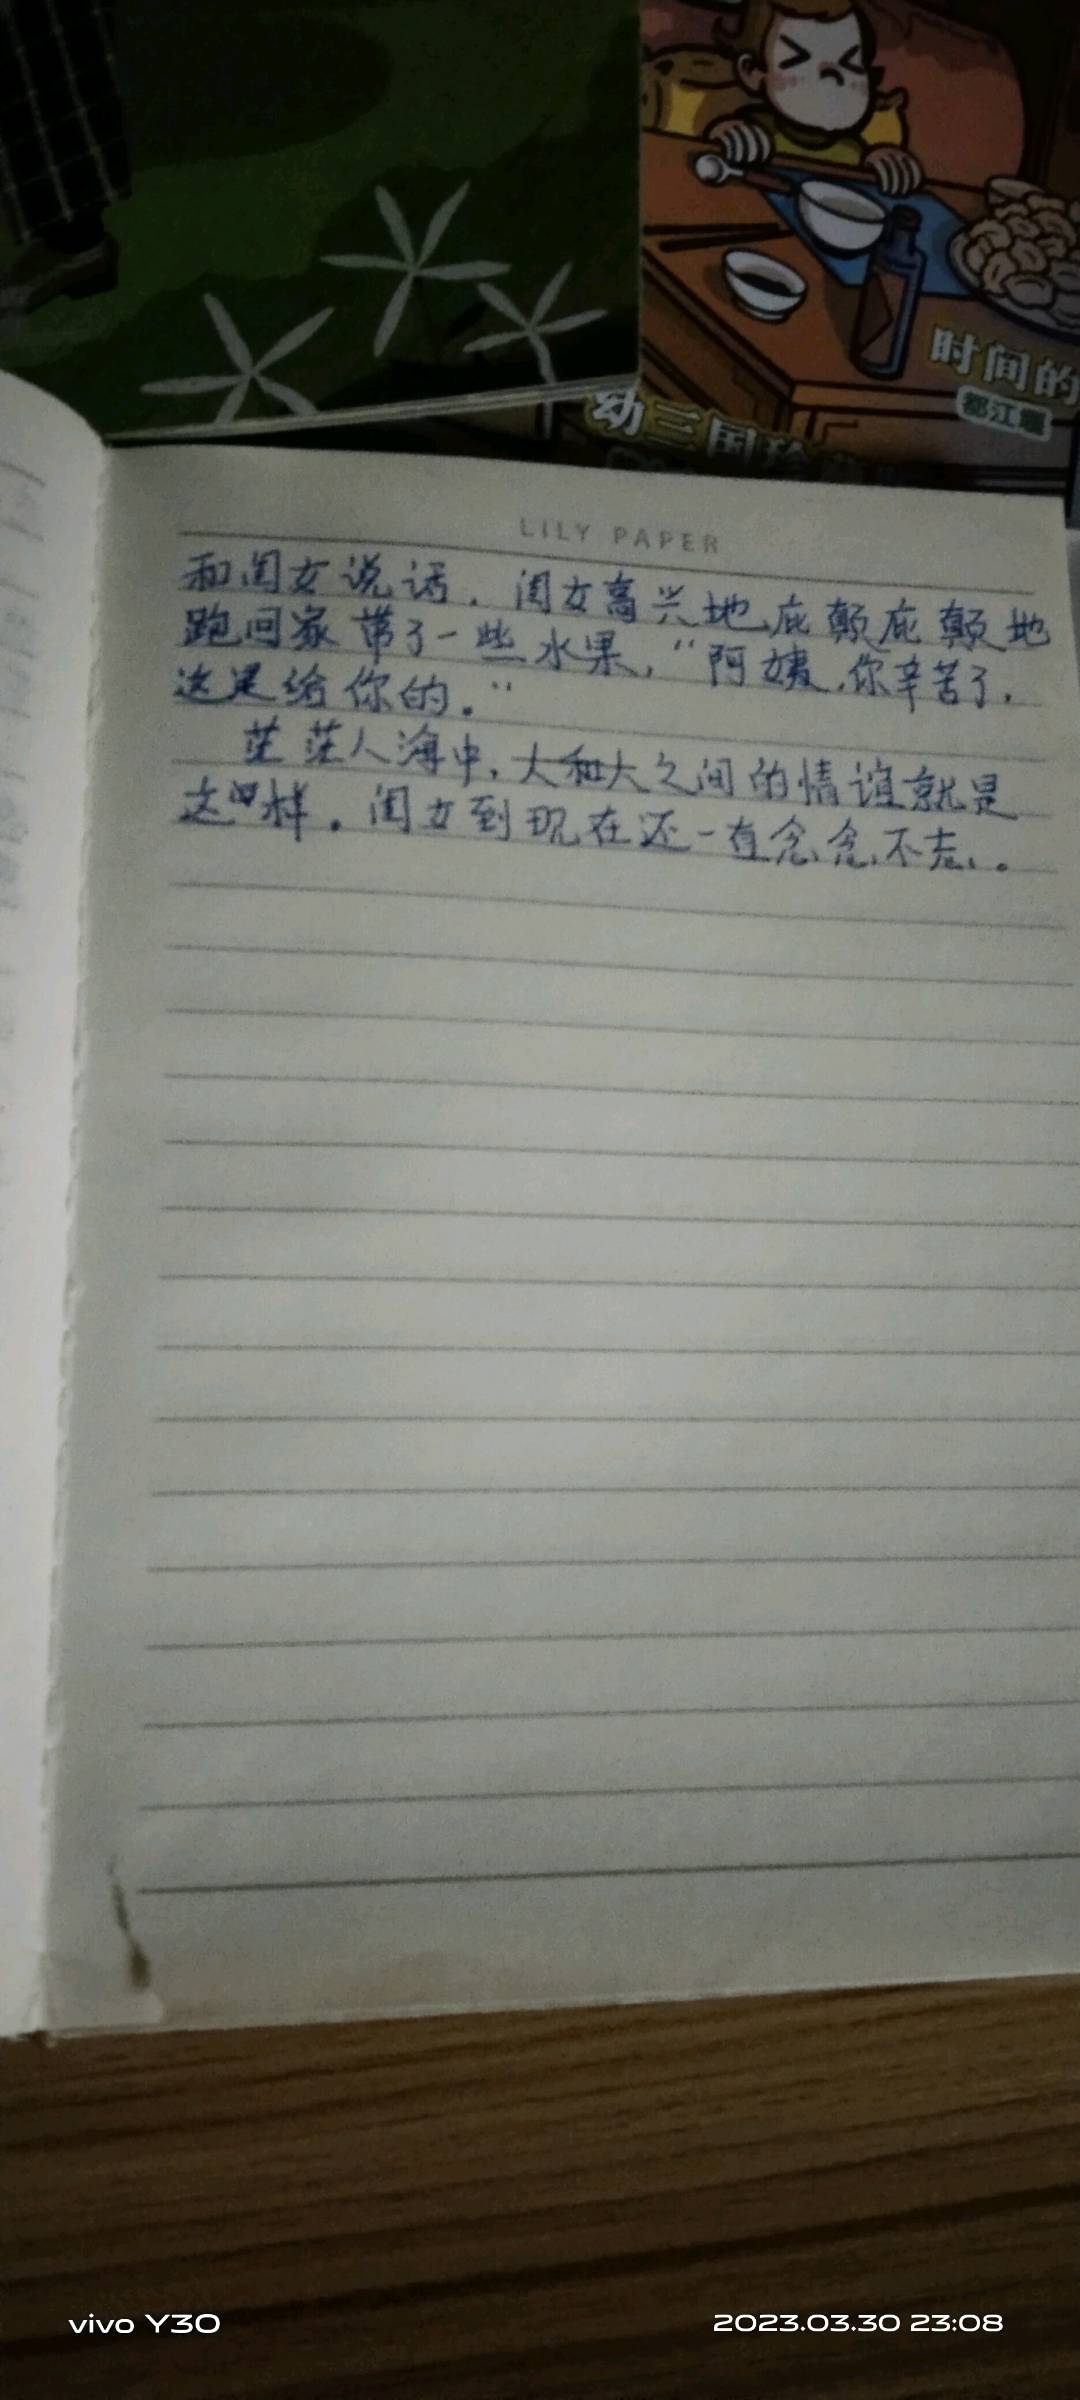 时间的
都江堰
幼三国珍
LILY PAPER
和闺女说话，闺女高兴地屁颠屁颠地
跑回家带了一些水果，“阿姨，你辛苦了，
这是给你的。”
茫茫人海中，人和人之间的情谊就是
这样。闺女到现在还一直念念不忘。
vivo Y30
2023.03.30 23:08